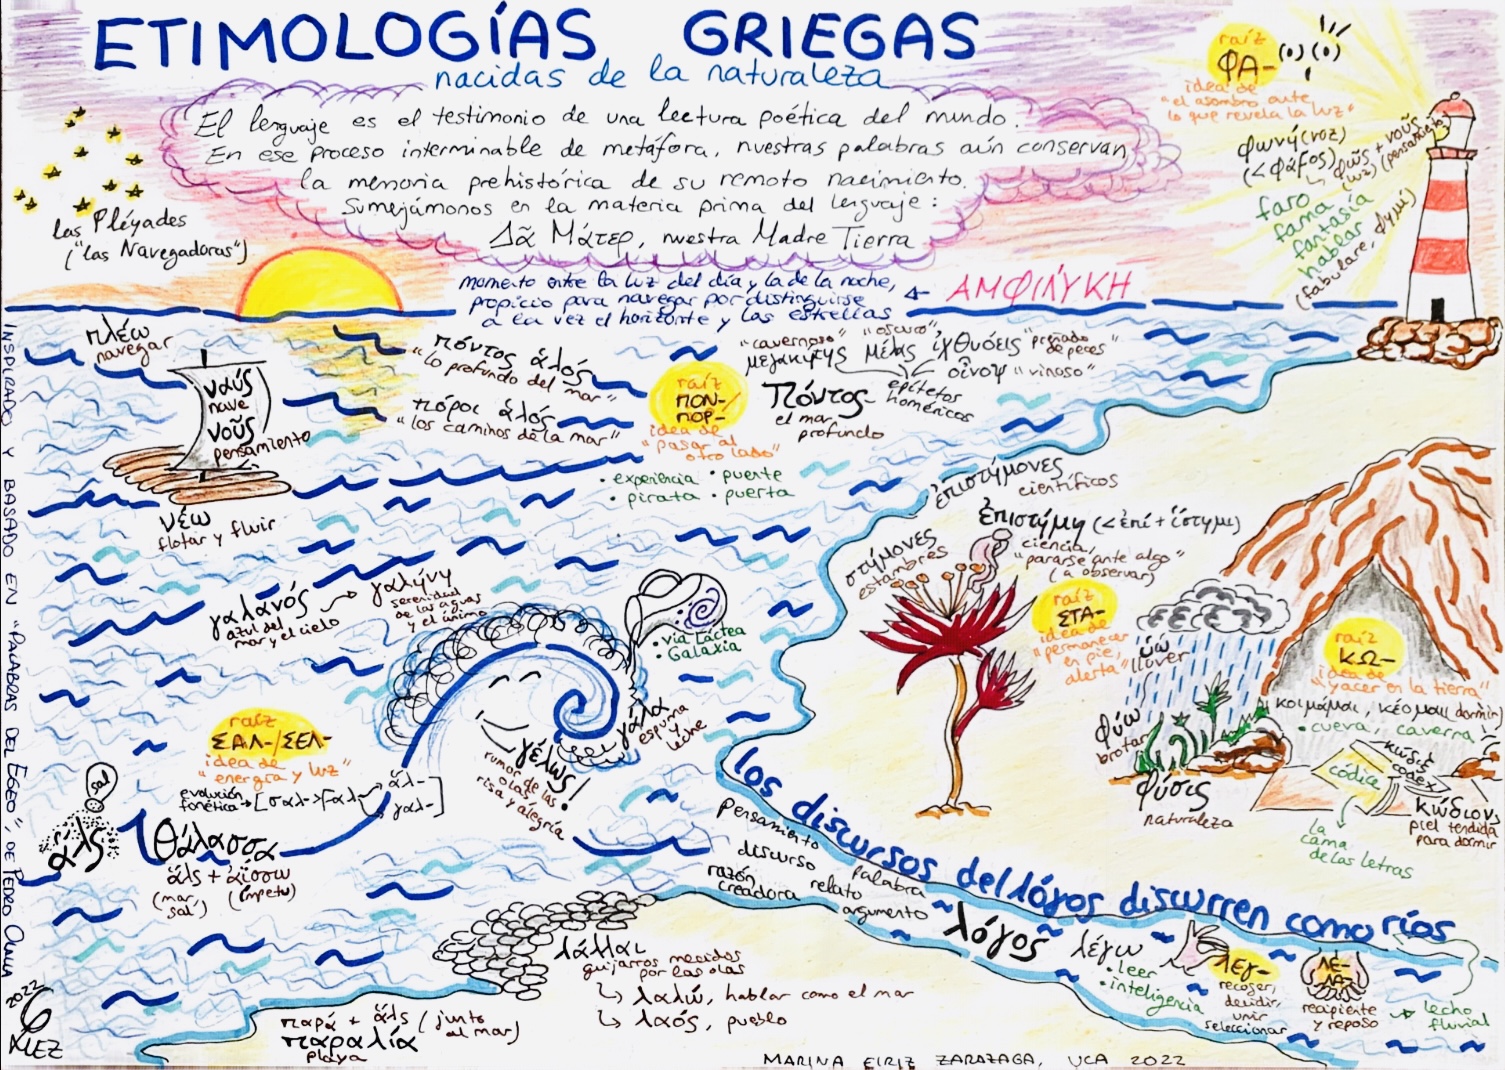 ETIMOLOGÍAS GRIEGAS
nacidas de la naturaleza
El lenguaje es el testimonio de una lectura poética del mundo.
En ese proceso interminable de metáfora, nuestras palabras aún conservan
la memoria prehistórica de su remoto nacimiento.
Sumejámonos en la materia prima del lenguaje:
Δᾶ Μάτερ, nuestra Madre Tierra
las Pléyades
("las Navegadoras")
raíz
ΦΑ-
idea de
"el asombro ante
lo que revela la luz"
φωνή (voz)
(< φάϝος)
φῶς + νοῦς
(luz) (pensamiento)
faro
fama
fantasía
hablar
(fabulare, φημί)
momento entre la luz del día y la de la noche,
propicio para navegar por distinguirse
a la vez el horizonte y las estrellas
ΑΜΦΙΛΥΚΗ
πλέω
navegar
ναύς
nave
νοῦς
pensamiento
νέω
flotar y fluir
πόντος ἁλός
"lo profundo del mar"
πόροι ἁλός
"los caminos de la mar"
raíz
ΠΟΝ-/
ΠΟΡ-
idea de
"pasar al
otro lado"
• experiencia • puente
• pirata • puerta
"cavernoso" "oscuro" "preñado
de peces"
μεγακήτης μέλας ἰχθυόεις
οἶνοψ "vinoso"
epítetos
homéricos
Πόντος
el mar
profundo
ἐπιστήμονες
científicos
ἐπιστήμη (< ἐπί + ἵστημι)
ciencia,
"pararse ante algo"
(a observar)
στήμονες
estambres
raíz
ΣΤΑ-
idea de
"permanecer
en pie,
alerta"
ὕω
llover
φύω
brotar
φύσις
naturaleza
raíz
ΚΩ-
idea de
"yacer en la tierra"
κοιμάμαι, κέομαι (dormir)
• cueva, caverna
códice
κώδιξ
codex
κώδιον
piel tendida
para dormir
la
cama
de las letras
γαλανός
azul del
mar y el cielo
γαλήνη
serenidad
de las aguas
y el ánimo
• vía Láctea
• Galaxia
γάλα
espuma
y
leche
γέλως!
rumor de las
olas,
risa y alegría
raíz
ΣΑΛ-/ΣΕΛ-
idea de
"energía y luz"
evolución
fonética → [σαλ- > ϝαλ- ἁλ- γαλ-]
sal
ἅλς
Θάλασσα
ἅλς + ἀΐσσω
(mar, sal) (ímpetu)
los discursos del λόγος discurren como ríos
pensamiento
discurso
palabra
razón
creadora
relato
argumento
λόγος
λέγω
• leer
• inteligencia
ΛΕΓ-
recoger,
decidir,
unir
seleccionar
ΛΕ-
ΛΑ-
recipiente
y reposo
lecho
fluvial
λάλλαι
guijarros mecidos
por las olas
λαλῶ, hablar como el mar
λαός, pueblo
παρά + ἅλς (junto
al mar)
παραλία
playa
INSPIRADO Y BASADO EN "PALABRAS DEL EGEO", DE PEDRO OLALLA
2022
MARINA EIRIZ ZARAZAGA, UCA 2022